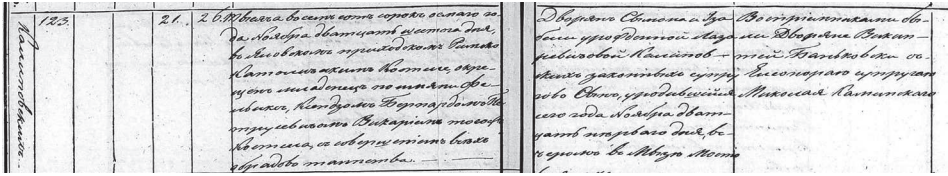 Калиновскихъ
123.
21.
26.
Тысяча восемь сотъ сорокъ осмаго го-
да Ноября двадцать шестаго дня,
въ Яловскомъ приходскомъ Римско
Католическомъ Костеле, окре-
щенъ младенецъ по имяни Фе-
ликсъ, Ксендзомъ Бернардомъ
Викаріемъ тогожъ
Костела, съ совершеніемъ всѣхъ
обрядовъ таинства.
Дворянъ Семіона и Иза-
бели урожденной Лаза-
ревичовой Калинов-
скихъ законныхъ супру
говъ Сынъ, уродившійся
сего года Ноября двад-
цать перваго дня, ве-
черомъ въ Мосто
Воспріемниками бы-
ли Дворяне Викен-
тій Баньковски съ
Елеонорою супругою
Николая Каминскаго